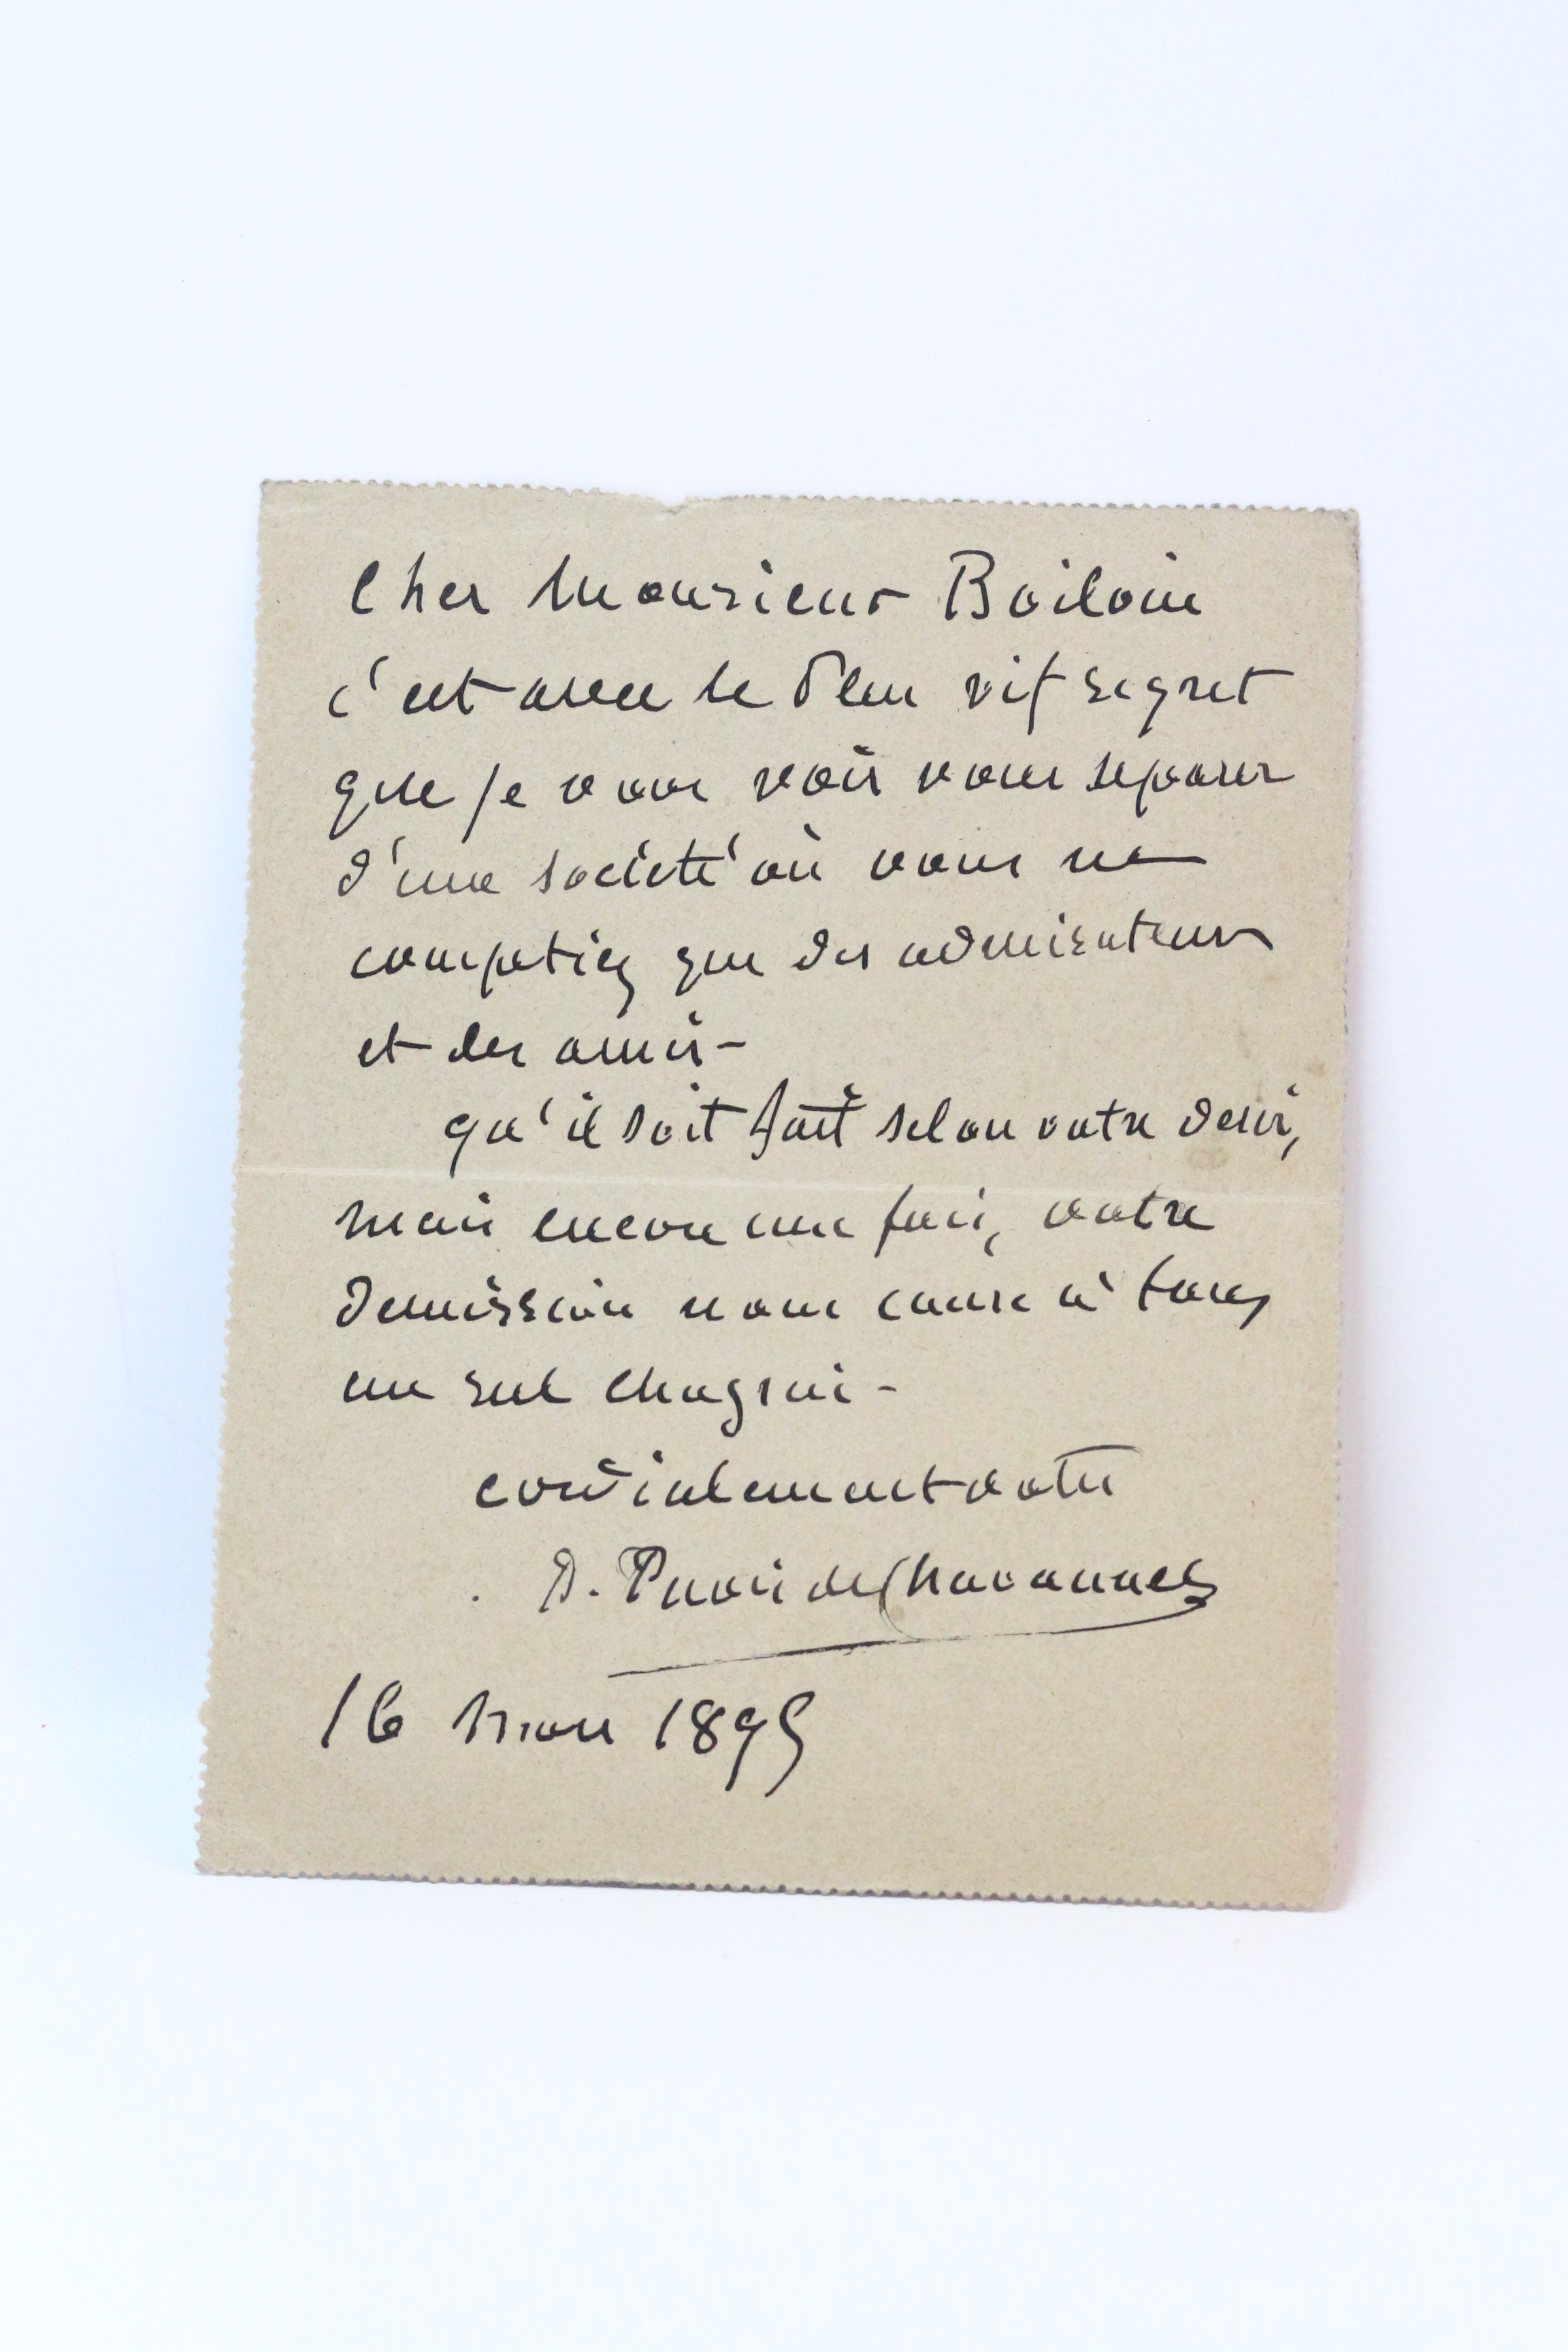 Cher Monsieur Boilvin
c'est avec le plus vif regret
que je vous vois vous séparer
d'une société où vous ne
comptiez que des admirateurs
et des amis -
qu'il soit fait selon votre desir,
mais encore une fois, votre
demission nous cause à tous
un réel chagrin -
cordialement votre
P. Puvis de Chavannes
16 mars 1895